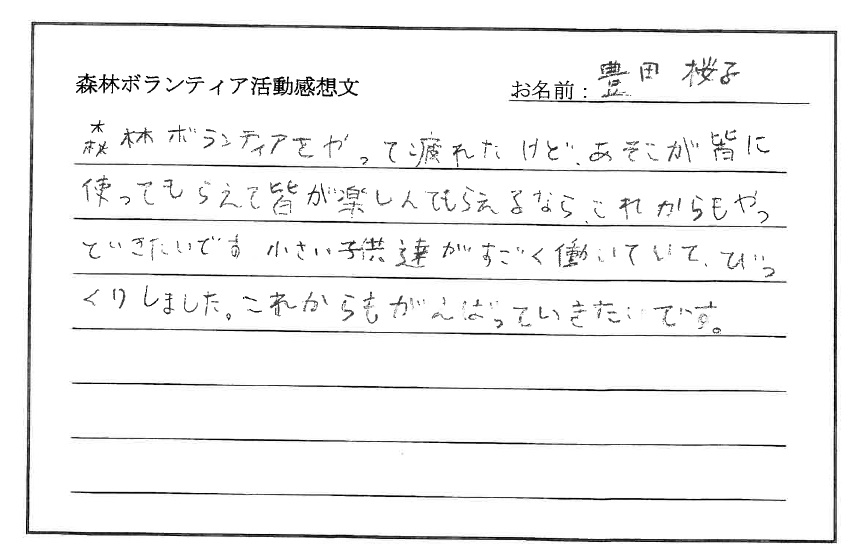 森林ボランティア活動感想文
お名前：豊田 桜子
森林ボランティアをやって疲れたけど、あそこが皆に
使ってもらえて皆が楽しんでもらえるなら、これからもやっ
ていきたいです 小さい子供達がすごく働いていて、びっ
くりしました。これからもがんばっていきたいです。